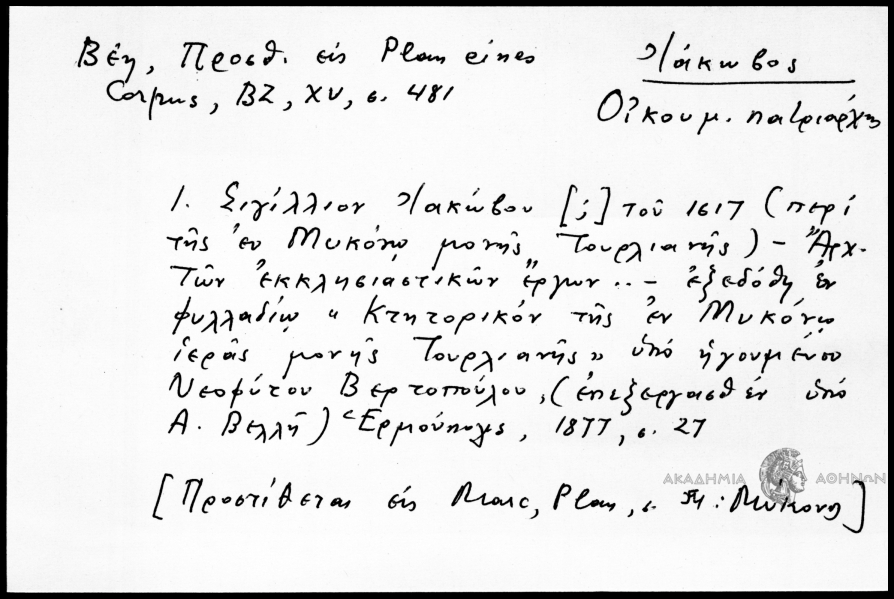 Βέη, Προσθ. εἰς Plan eines
Corpus, BZ, XV, σ. 481
Ἰάκωβος
Οἰκουμ. πατριάρχης
1. Σιγίλλιον Ἰακώβου [;] τοῦ 1617 (περὶ
τῆς ἐν Μυκόνῳ μονῆς Τουρλιανῆς) – Ἀρχ.
τῶν ἐκκλησιαστικῶν ἔργων .. – ἐξεδόθη ἐν
φυλλαδίῳ « Κτητορικόν τῆς ἐν Μυκόνῳ
ἱερᾶς μονῆς Τουρλιανῆς » ὑπό ἡγουμένου
Νεοφύτου Βερτοπούλου, (ἐπεξεργασθέν ὑπό
Α. Βελλῆ) Ἑρμούπολις, 1877, σ. 27
[Προστίθεται εἰς Marc, Plan, σ. : Μύκονος]
ΑΚΑΔΗΜΙΑ ΑΘΗΝΩΝ